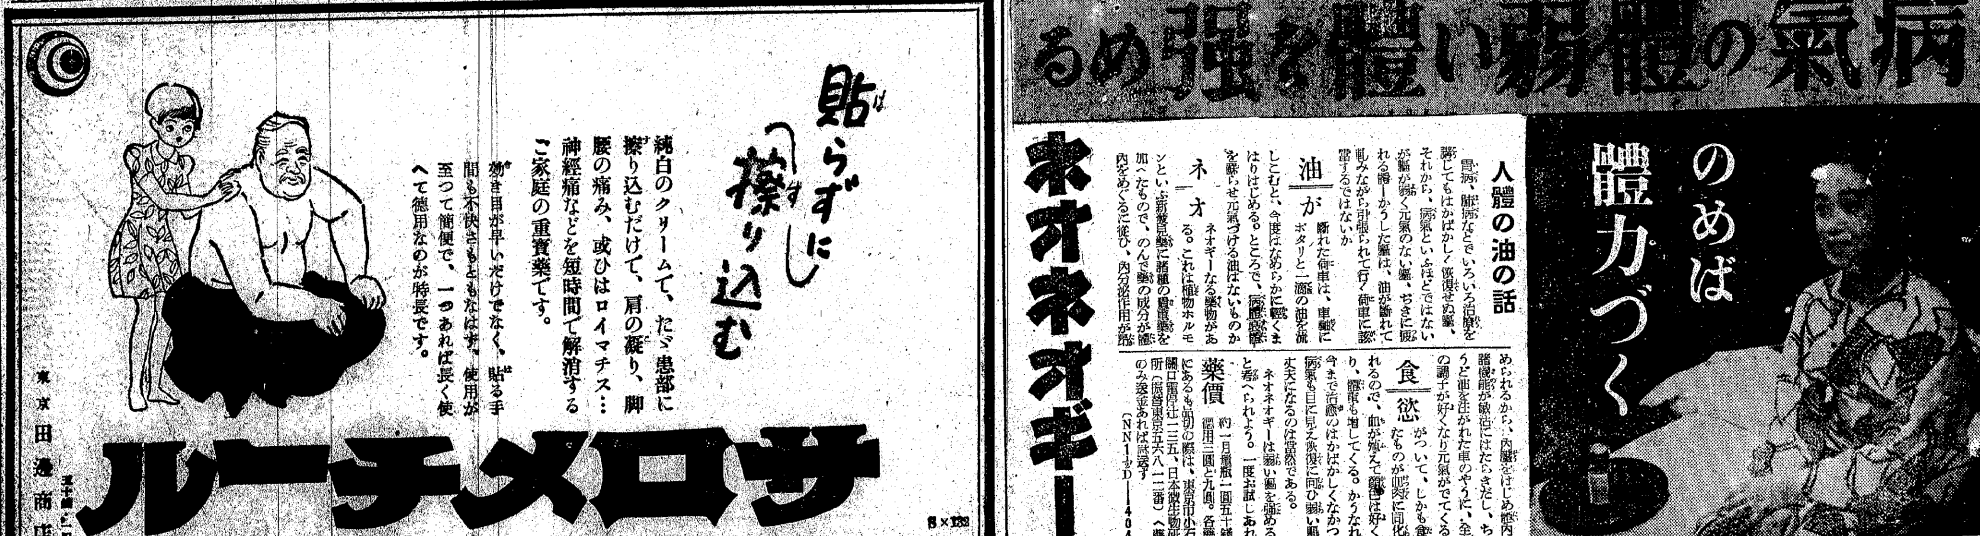 病氣の弱體い體を强める
のめば
體力づく
人體の油の話
胃病、肺病などでいろいろ治療を
講じてもはかばかしく恢復せぬ軀、
それから、病氣といふほどではない
が軀が弱く元氣のない軀、ぢきに疲
れる軀―かうした軀は、油が斷れて
軋みながら引張られて行く荷車に該
當するではないか
油が
斷れた荷車は、車軸に
ポタリと一滴の油を流
しこむと、今度はなめらかに輕くま
はりはじめる。ところで、
を蘇らせ元氣づける油はないものか
ネオ
ネオギーなる藥物があ
る。これは植物ホルモ
ンといふ新發見藥に諸種の
加へたもので、のんで藥の成分が體
內をめぐるに從ひ、內分泌作用が昂
められるから、內臟をはじめ體內
諸機能が敏活にはたらきだし、ち
うど油を注がれた車のやうに、全
の調子が好くなり元氣がでてくる
食慾
がついて、しかも食
たものが血肉に同化
れるので、血が殖えて顏色は好く
り、體重も增してくる。かうなれ
今まで治癒のはかばかしくなかつ
病氣も目に見え恢復に向ひ弱い軀
丈夫になるのは當然である。
ネオネオギーは弱い軀を强める
と考へられよう。一度お試しあれ
藥價
約一月量瓶一圓五十錢
德用三圓と九圓。各藥
にあるも品切の際は、東京市小石
關口
のみ送金あれば直送す
ネオネオギー
貼らずに
擦り込む
純白のクリームで、たゞ患部に
擦り込むだけで、肩の凝り、脚
腰の痛み、或ひはロイマチス…
神經痛などを短時間で解消する
ご家庭の重寶藥です。
効き目が早いだけでなく、貼る手
間も不快さもともなはず、使用が
至つて簡便で、一つあれば長く使
へて德用なのが特長です。
サロメチール
東京田邊商店